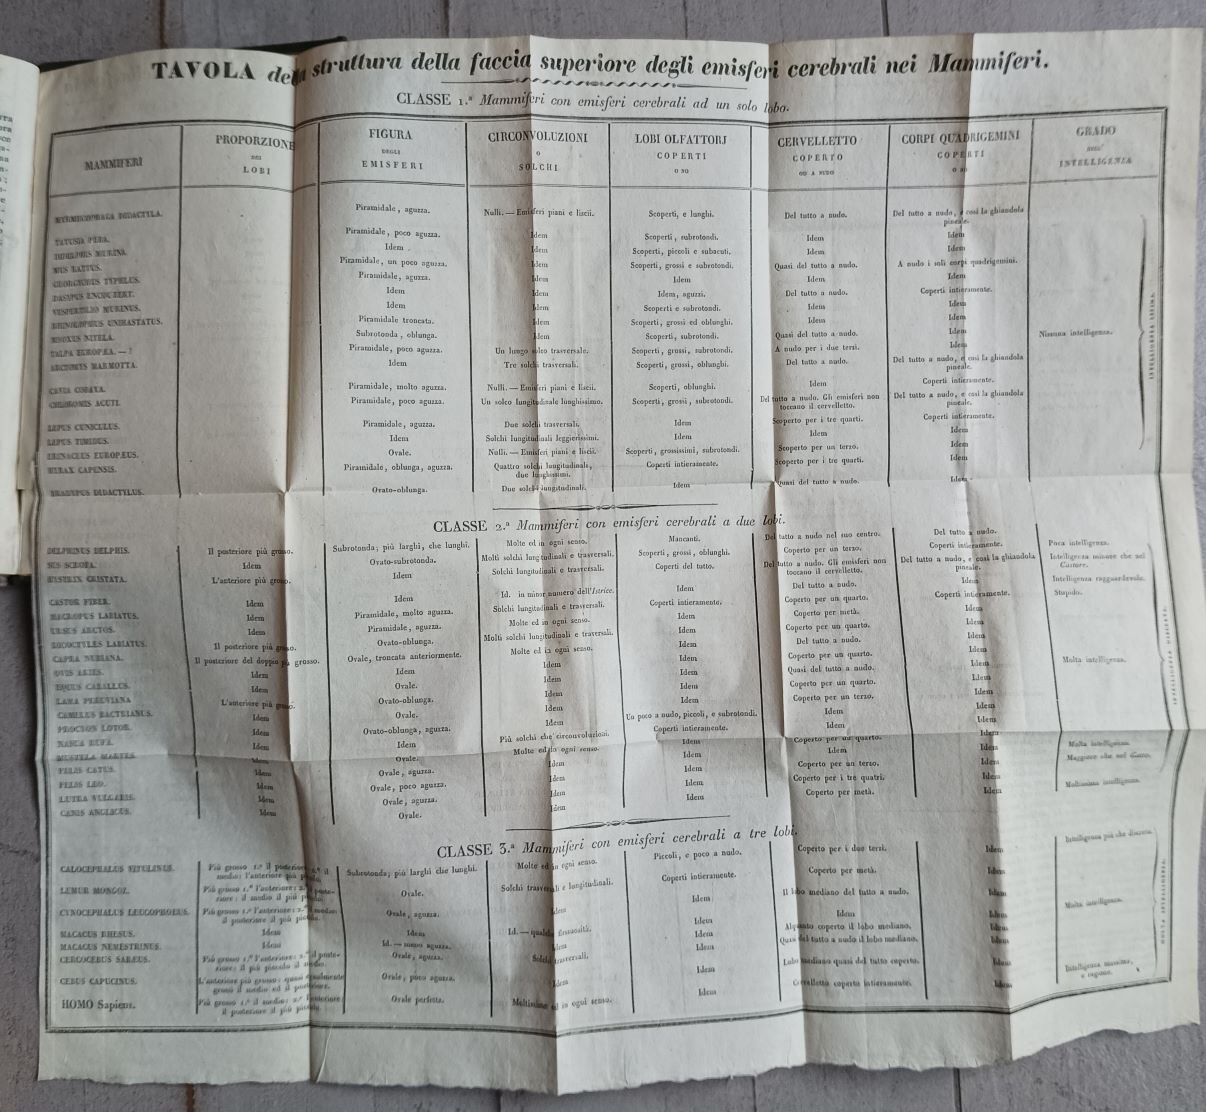 TAVOLA della struttura della faccia superiore degli emisferi cerebrali nei Mammiferi.
CLASSE 1.ª Mammiferi con emisferi cerebrali ad un solo lobo.
MAMMIFERI PROPORZIONE DEI LOBI FIGURA DEGLI EMISFERI CIRCONVOLUZIONI O SOLCHI LOBI OLFATTORJ COPERTI O NO CERVELLETTO COPERTO OD A NUDO CORPI QUADRIGEMINI COPERTI O NO GRADO DELL' INTELLIGENZA
MYRMECOPHAGA DIDACTYLA. Piramidale, aguzza. Nulli. — Emisferi piani e liscii. Scoperti, e lunghi. Del tutto a nudo. Del tutto a nudo, e così la ghiandola pineale.
Piramidale, poco aguzza. Idem Scoperti, subrotondi. Idem Idem
Idem Idem Scoperti, piccoli e subacuti. Idem Idem
MUS RATTUS. Piramidale, un poco aguzza. Idem Scoperti, grossi e subrotondi. Quasi del tutto a nudo. A nudo i soli corpi quadrigemini.
Piramidale, aguzza. Idem Idem Idem Idem
Idem Idem Idem, aguzzi. Del tutto a nudo. Coperti intieramente.
VESPERTILIO MURINUS. Idem Idem Scoperti e subrotondi. Idem Idem
Piramidale troncata. Idem Scoperti, grossi ed oblunghi. Idem Idem
MYOXUS NITELA. Subrotonda, oblunga. Idem Scoperti, subrotondi. Quasi del tutto a nudo. Idem Nissuna intelligenza.
TALPA EUROPÆA. — ? Piramidale, poco aguzza. Un lungo solco trasversale. Scoperti, grossi, subrotondi. A nudo per i due terzi. Idem
ARCTOMYS MARMOTTA. Idem Tre solchi trasversali. Scoperti, grossi, oblunghi. Del tutto a nudo. Del tutto a nudo, e così la ghiandola pineale.
CAVIA COBAYA. Piramidale, molto aguzza. Nulli. — Emisferi piani e liscii. Scoperti, oblunghi. Idem Coperti intieramente.
CHLOROMIS ACUTI. Piramidale, poco aguzza. Un solco longitudinale lunghissimo. Scoperti, grossi, subrotondi. Del tutto a nudo. Gli emisferi non toccano il cervelletto. Del tutto a nudo, e così la ghiandola pineale.
LEPUS CUNICULUS. Piramidale, aguzza. Due solchi trasversali. Idem Scoperto per i tre quarti. Coperti intieramente.
LEPUS TIMIDUS. Idem Solchi longitudinali leggierissimi. Idem Idem Idem
ERINACEUS EUROPÆUS. Ovale. Nulli. — Emisferi piani e liscii. Scoperti, grossissimi, subrotondi. Scoperto per un terzo. Idem
HYRAX CAPENSIS. Piramidale, oblunga, aguzza. Quattro solchi longitudinali, due lunghissimi. Coperti intieramente. Scoperto per i tre quarti. Idem
BRADYPUS DIDACTYLUS. Ovato-oblonga. Due solchi longitudinali. Idem Quasi del tutto a nudo. Idem
CLASSE 2.ª Mammiferi con emisferi cerebrali a due lobi.
DELPHINUS DELPHIS. Il posteriore più grosso. Subrotonda; più larghi, che lunghi. Molte ed in ogni senso. Mancanti. Del tutto a nudo nel suo centro. Del tutto a nudo. Poca intelligenza.
SUS SCROFA. Idem Ovato-subrotonda. Molti solchi longitudinali e trasversali. Scoperti, grossi, oblunghi. Coperto per un terzo. Coperti intieramente. Intelligenza minore che nel Castore.
HYSTRIX CRISTATA. L'anteriore più grosso. Idem Solchi longitudinali e trasversali. Del tutto a nudo. Gli emisferi non toccano il cervelletto. Del tutto a nudo, e così la ghiandola pineale. Intelligenza ragguardevole.
CASTOR FIBER. Idem Idem Id. in minor numero dell'Istrice. Idem Del tutto a nudo. Idem Stupido.
MACROPUS LABIATUS. Idem Piramidale, molto aguzza. Solchi longitudinali e trasversali. Coperti intieramente. Coperto per un quarto. Coperti intieramente.
URSUS ARCTOS. Idem Piramidale, aguzza. Molte ed in ogni senso. Idem Coperto per metà. Idem
Il posteriore più grosso. Ovato-oblunga. Molti solchi longitudinali e trasversali. Idem Coperto per un quarto. Idem
CAPRA NUBIANA. Il posteriore del doppio più grosso. Ovale, troncata anteriormente. Molte ed in ogni senso. Idem Del tutto a nudo. Idem Molta intelligenza.
OVIS ARIES. Idem Idem Idem Idem Coperto per un quarto. Idem
EQUUS CABALLUS. Idem Ovale. Idem Idem Quasi del tutto a nudo. Idem
LAMA PERUVIANA L'anteriore più grosso. Ovato-oblunga. Idem Idem Coperto per un quarto. Idem
CAMELUS BACTRIANUS. Idem Ovale. Idem Un poco a nudo, piccoli, e subrotondi. Coperto per un terzo. Idem
PROCYON LOTOR. Idem Ovato-oblunga, aguzza. Più solchi che circonvoluzioni. Coperti intieramente. Idem Idem
NASUA RUFA. Idem Idem Molte ed in ogni senso. Idem Coperto per un quarto. Idem Molta intelligenza.
MUSTELA MARTES. Idem Ovale. Idem Idem Idem Idem Maggiore che nel Gatto.
FELIS CATUS. Idem Ovale, aguzza. Idem Idem Coperto per un terzo. Idem
FELIS LEO. Idem Ovale, poco aguzza. Idem Idem Coperto per i tre quatri. Idem Moltissima intelligenza.
LUTRA VULGARIS. Idem Ovale, aguzza. Idem Idem Coperto per metà. Idem
CANIS ANGLICUS. Idem Ovale. Idem
CLASSE 3.ª Mammiferi con emisferi cerebrali a tre lobi.
CALOCEPHALUS VITULINUS. Più grosso 1.º il posteriore; 2.º il medio; l'anteriore più piccolo. Subrotonda; più larghi che lunghi. Molte ed in ogni senso. Piccoli, e poco a nudo. Coperto per i due terzi. Idem Intelligenza più che discreta.
LEMUR MONGOZ. Più grosso 1.º l'anteriore; 2.º posteriore: il medio il più piccolo. Ovale. Solchi trasversali e longitudinali. Coperti intieramente. Coperto per metà. Idem
CYNOCEPHALUS LEUCOPHOEUS. Più grosso 1.º l'anteriore: 2.º medio: il posteriore il più piccolo. Ovale, aguzza. Idem Idem Il lobo mediano del tutto a nudo. Idem Molta intelligenza.
MACACUS RHESUS. Idem Idem Id. — qualche flessuosità. Idem Idem Idem
MACACUS NEMESTRINUS. Idem Id. — meno aguzza. Idem Idem Alquanto coperto il lobo mediano. Idem
CERCOCEBUS SABÆUS. Più grosso 1.º l'anteriore: 2.º il posteriore: il più piccolo il medio. Ovale, aguzza. Solchi trasversali. Idem Quasi del tutto a nudo il lobo mediano. Idem
CEBUS CAPUCINUS. L'anteriore più grosso: quasi egualmente grossi il medio ed il posteriore. Ovale, poco aguzza. Idem Idem Lobo mediano quasi del tutto coperto. Idem Intelligenza massima, e ragione.
HOMO Sapiens. Più grosso 1.º il medio; 2.º l'anteriore; il posteriore il più piccolo. Ovale perfetta. Moltissime ed in ogni senso. Idem Cervelletto coperto intieramente. Idem